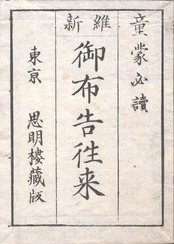 童蒙必讀
維新
御布告徃来
東京　思明樓藏版